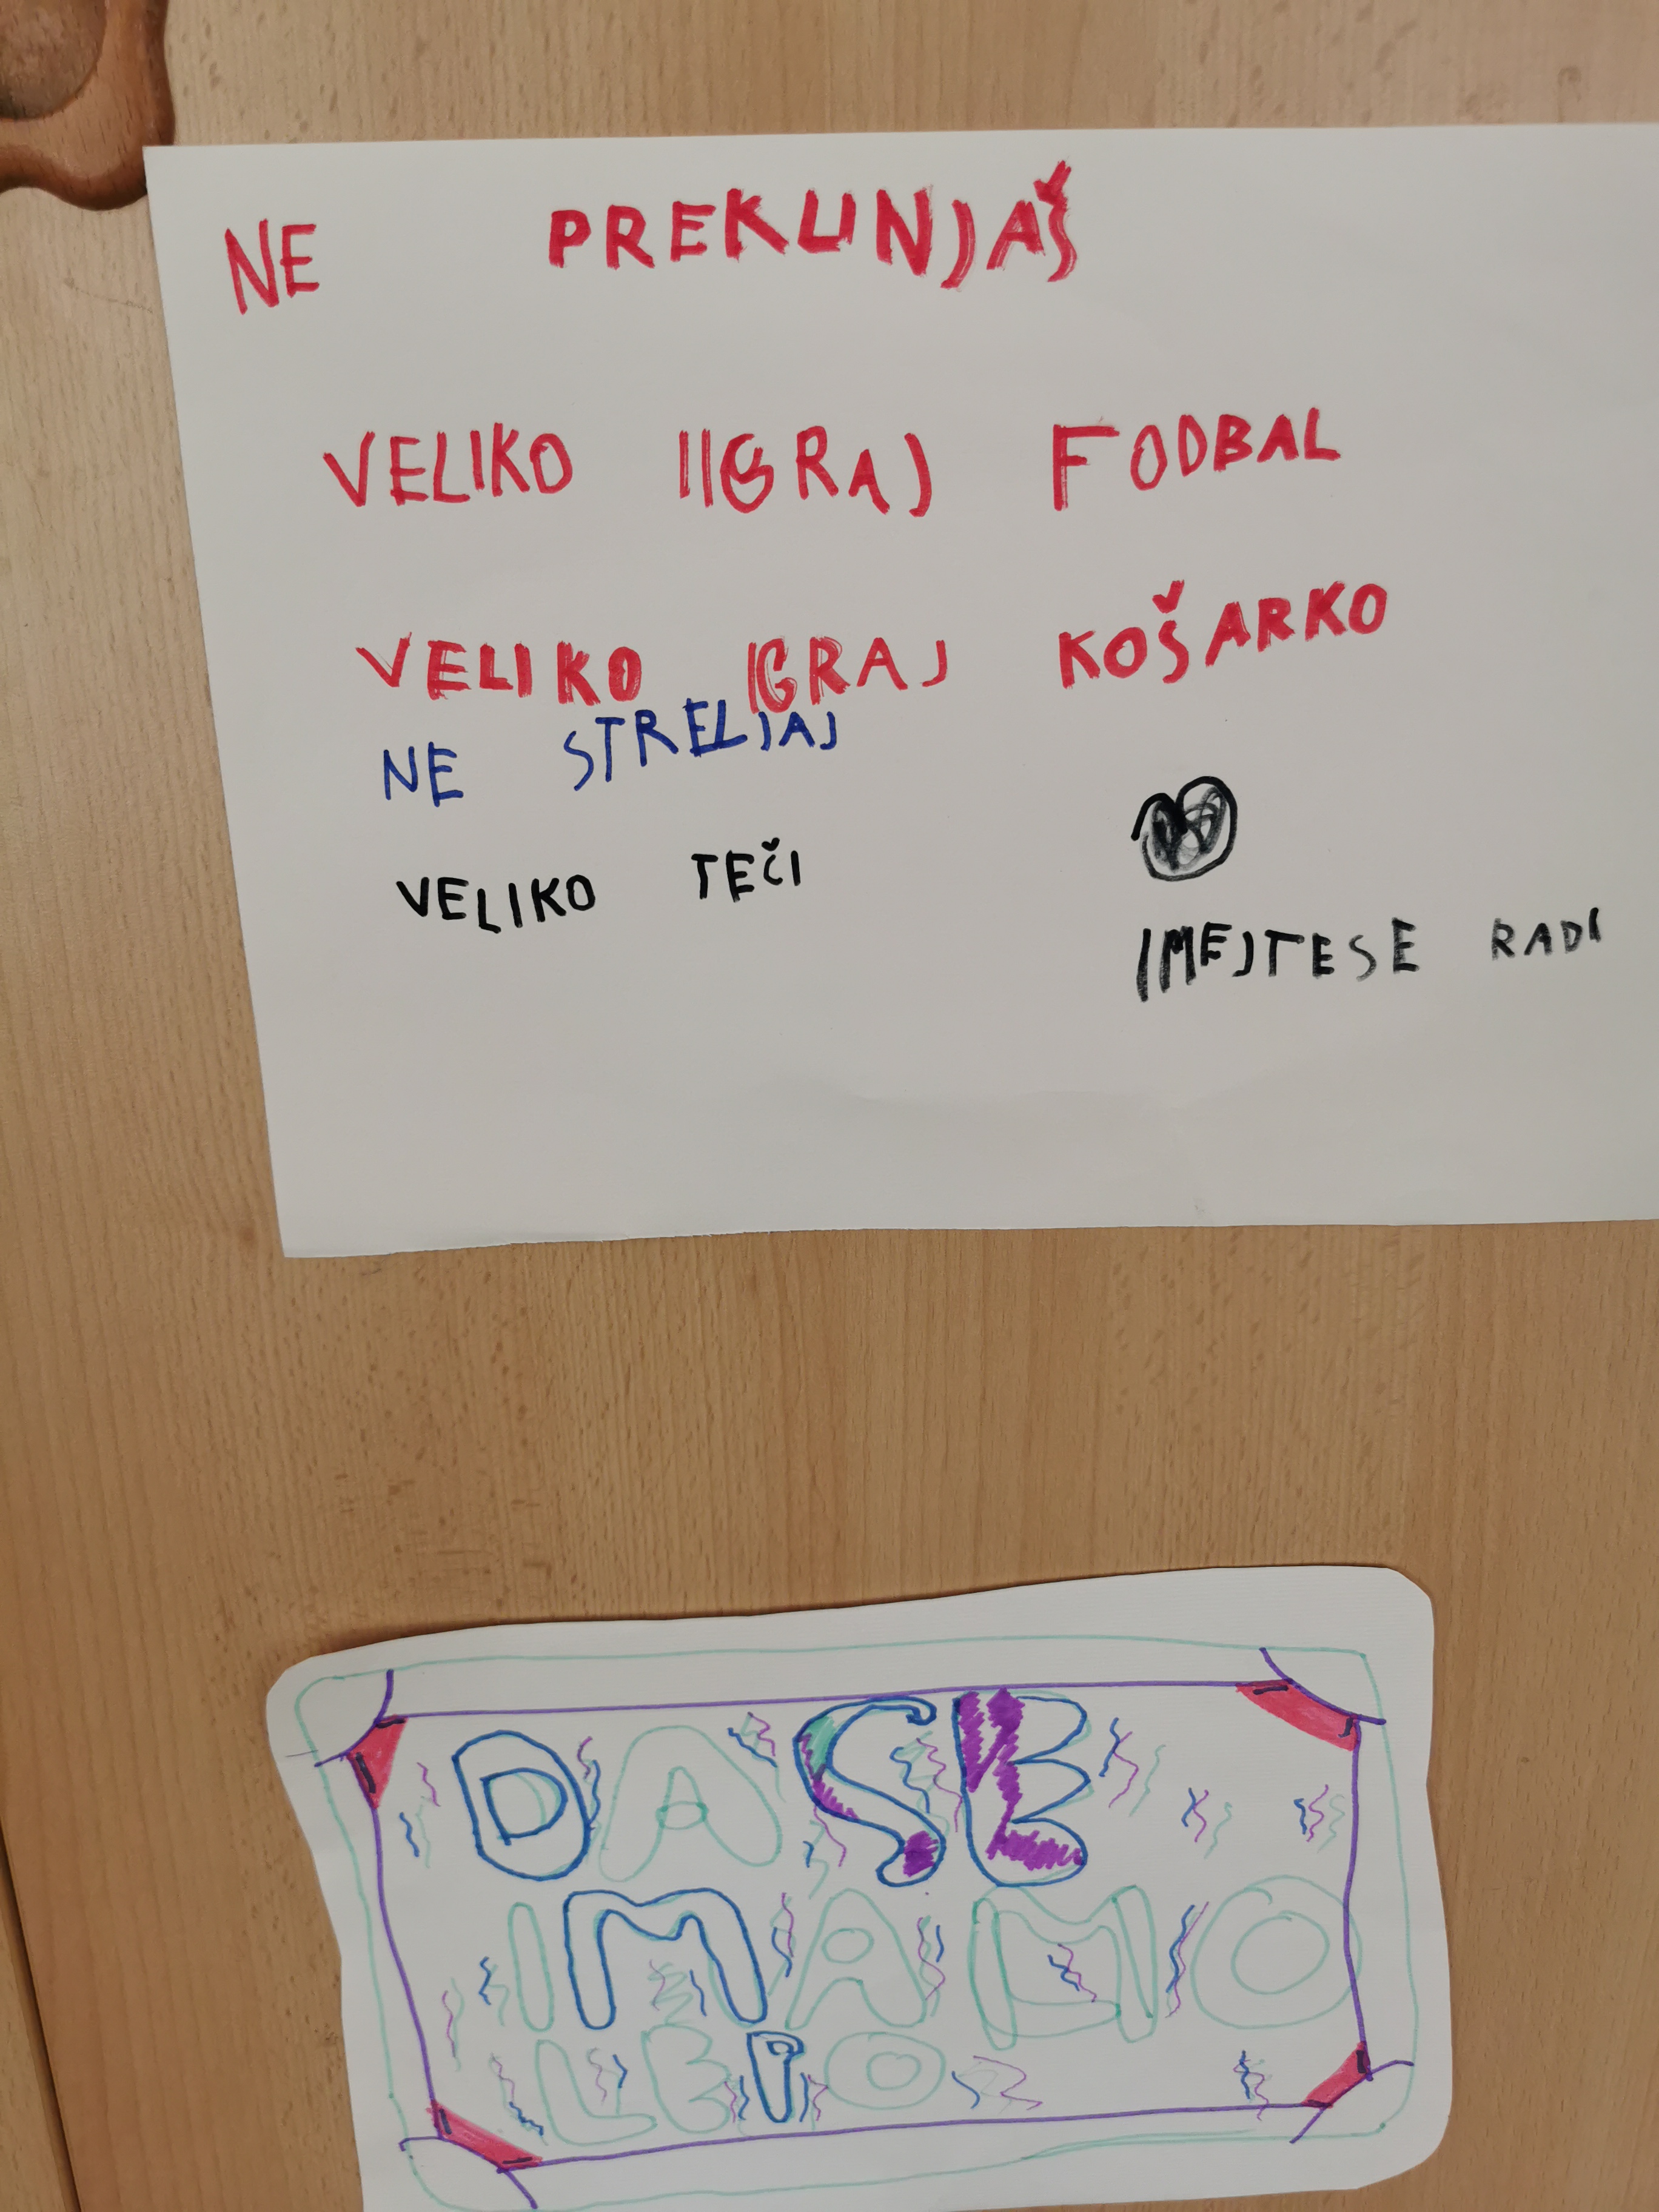 NE PREKUNJAŠ
VELIKO IIGRAJ FODBAL
VELIKO IGRAJ KOŠARKO
NE STRELJAJ
VELIKO TEČI
IMEJTESE RADI
DA SE
IMAMO
LEPO